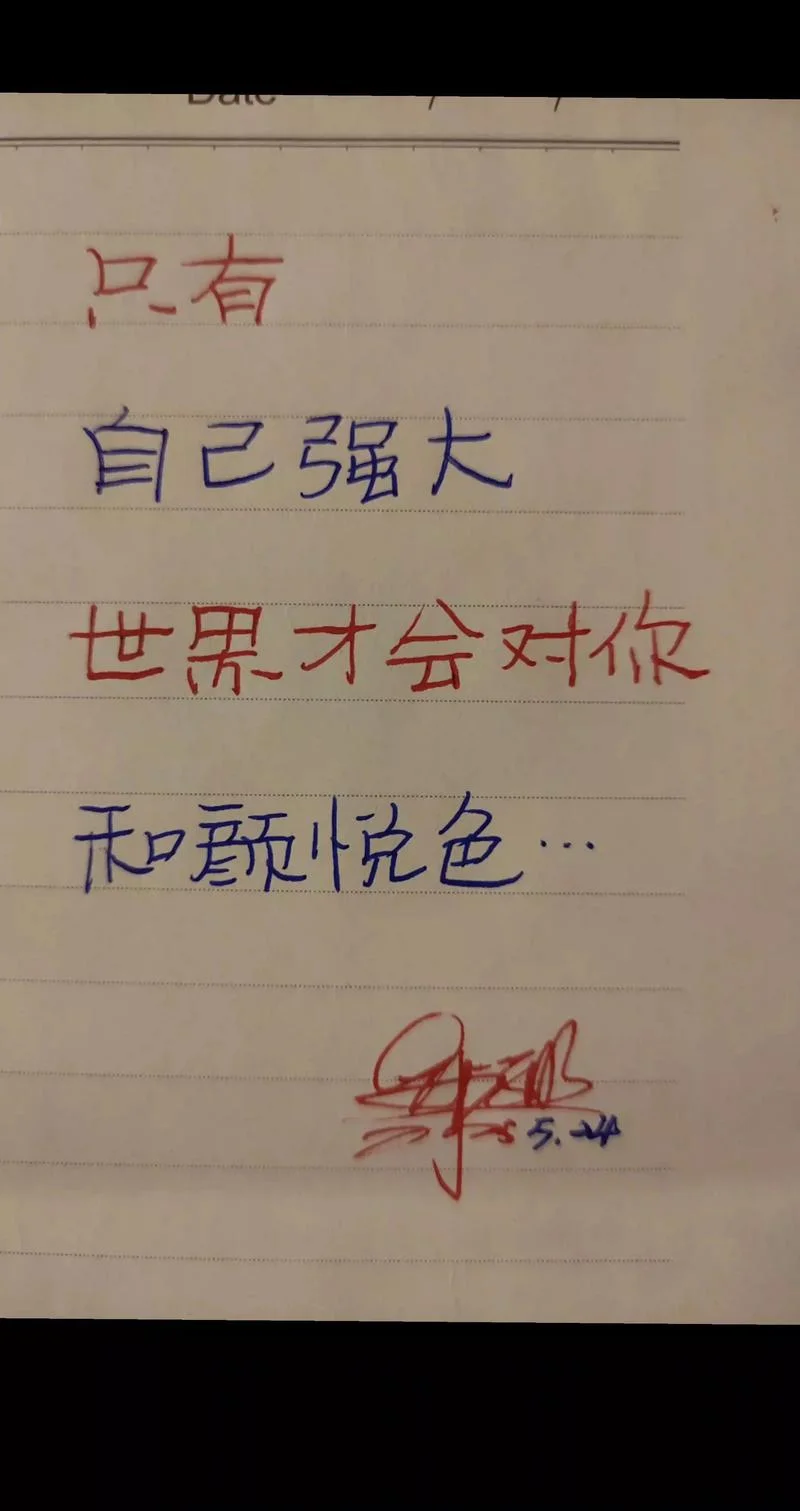 Date / /
只有
自己强大
世界才会对你
和颜悦色…
5.24